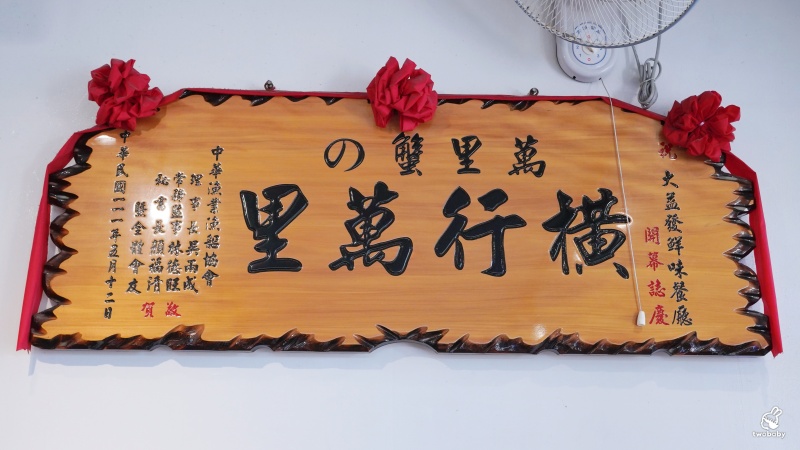 大益發鮮味餐廳
開幕誌慶
萬里蟹の
橫行萬里
中華漁業漁船協會
理事長吳雨成
常務監事林德旺
秘書長顏福清
暨全體會友
敬賀
中華民國一一一年五月十二日
twobaby